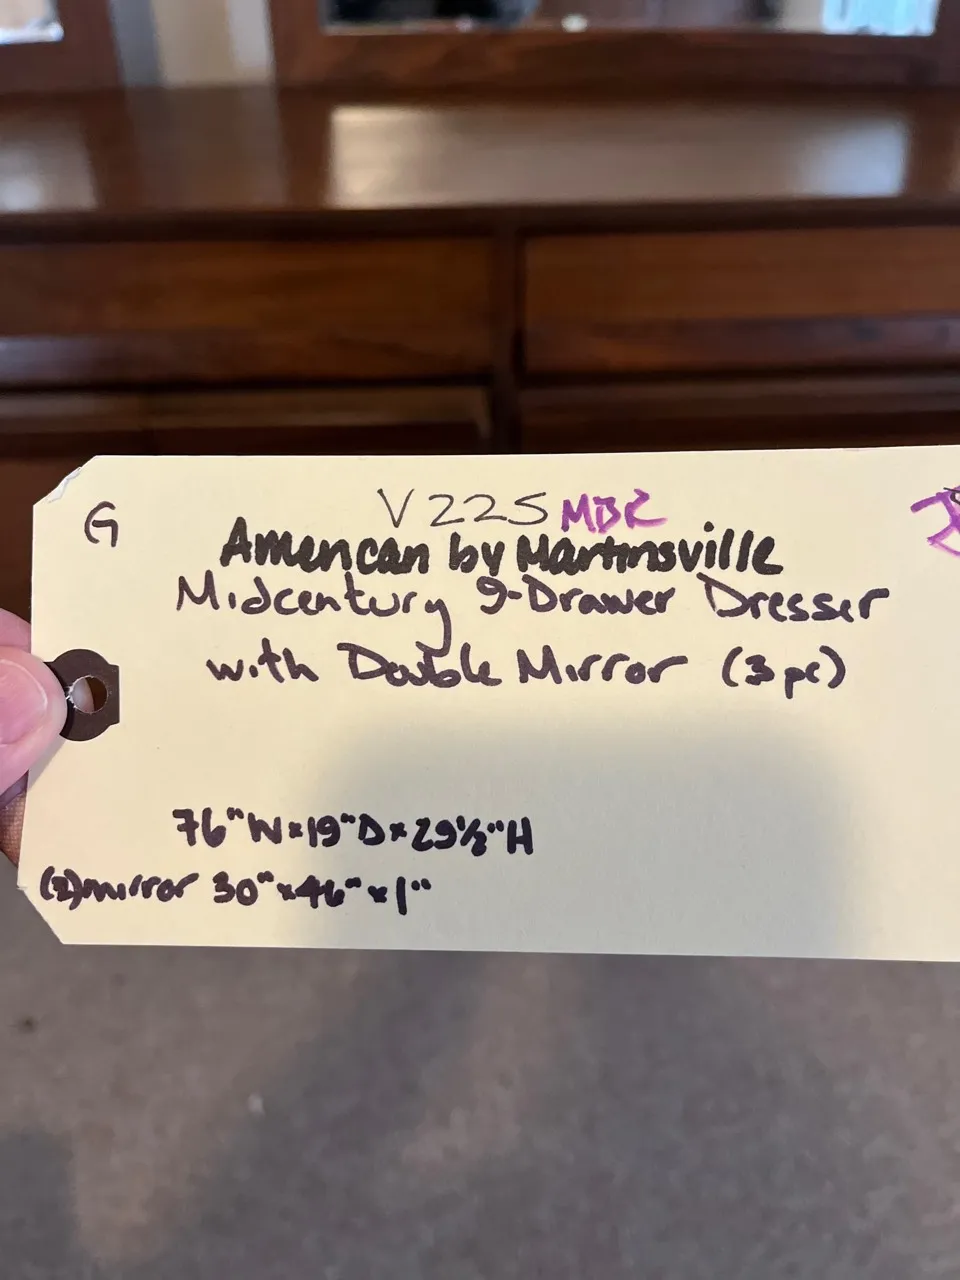 G
V225 MBR
American by Martinsville
Midcentury 9-Drawer Dresser
with Double Mirror (3 pc)
76"W x 19"D x 29½"H
(2) mirror 30" x 46" x 1"